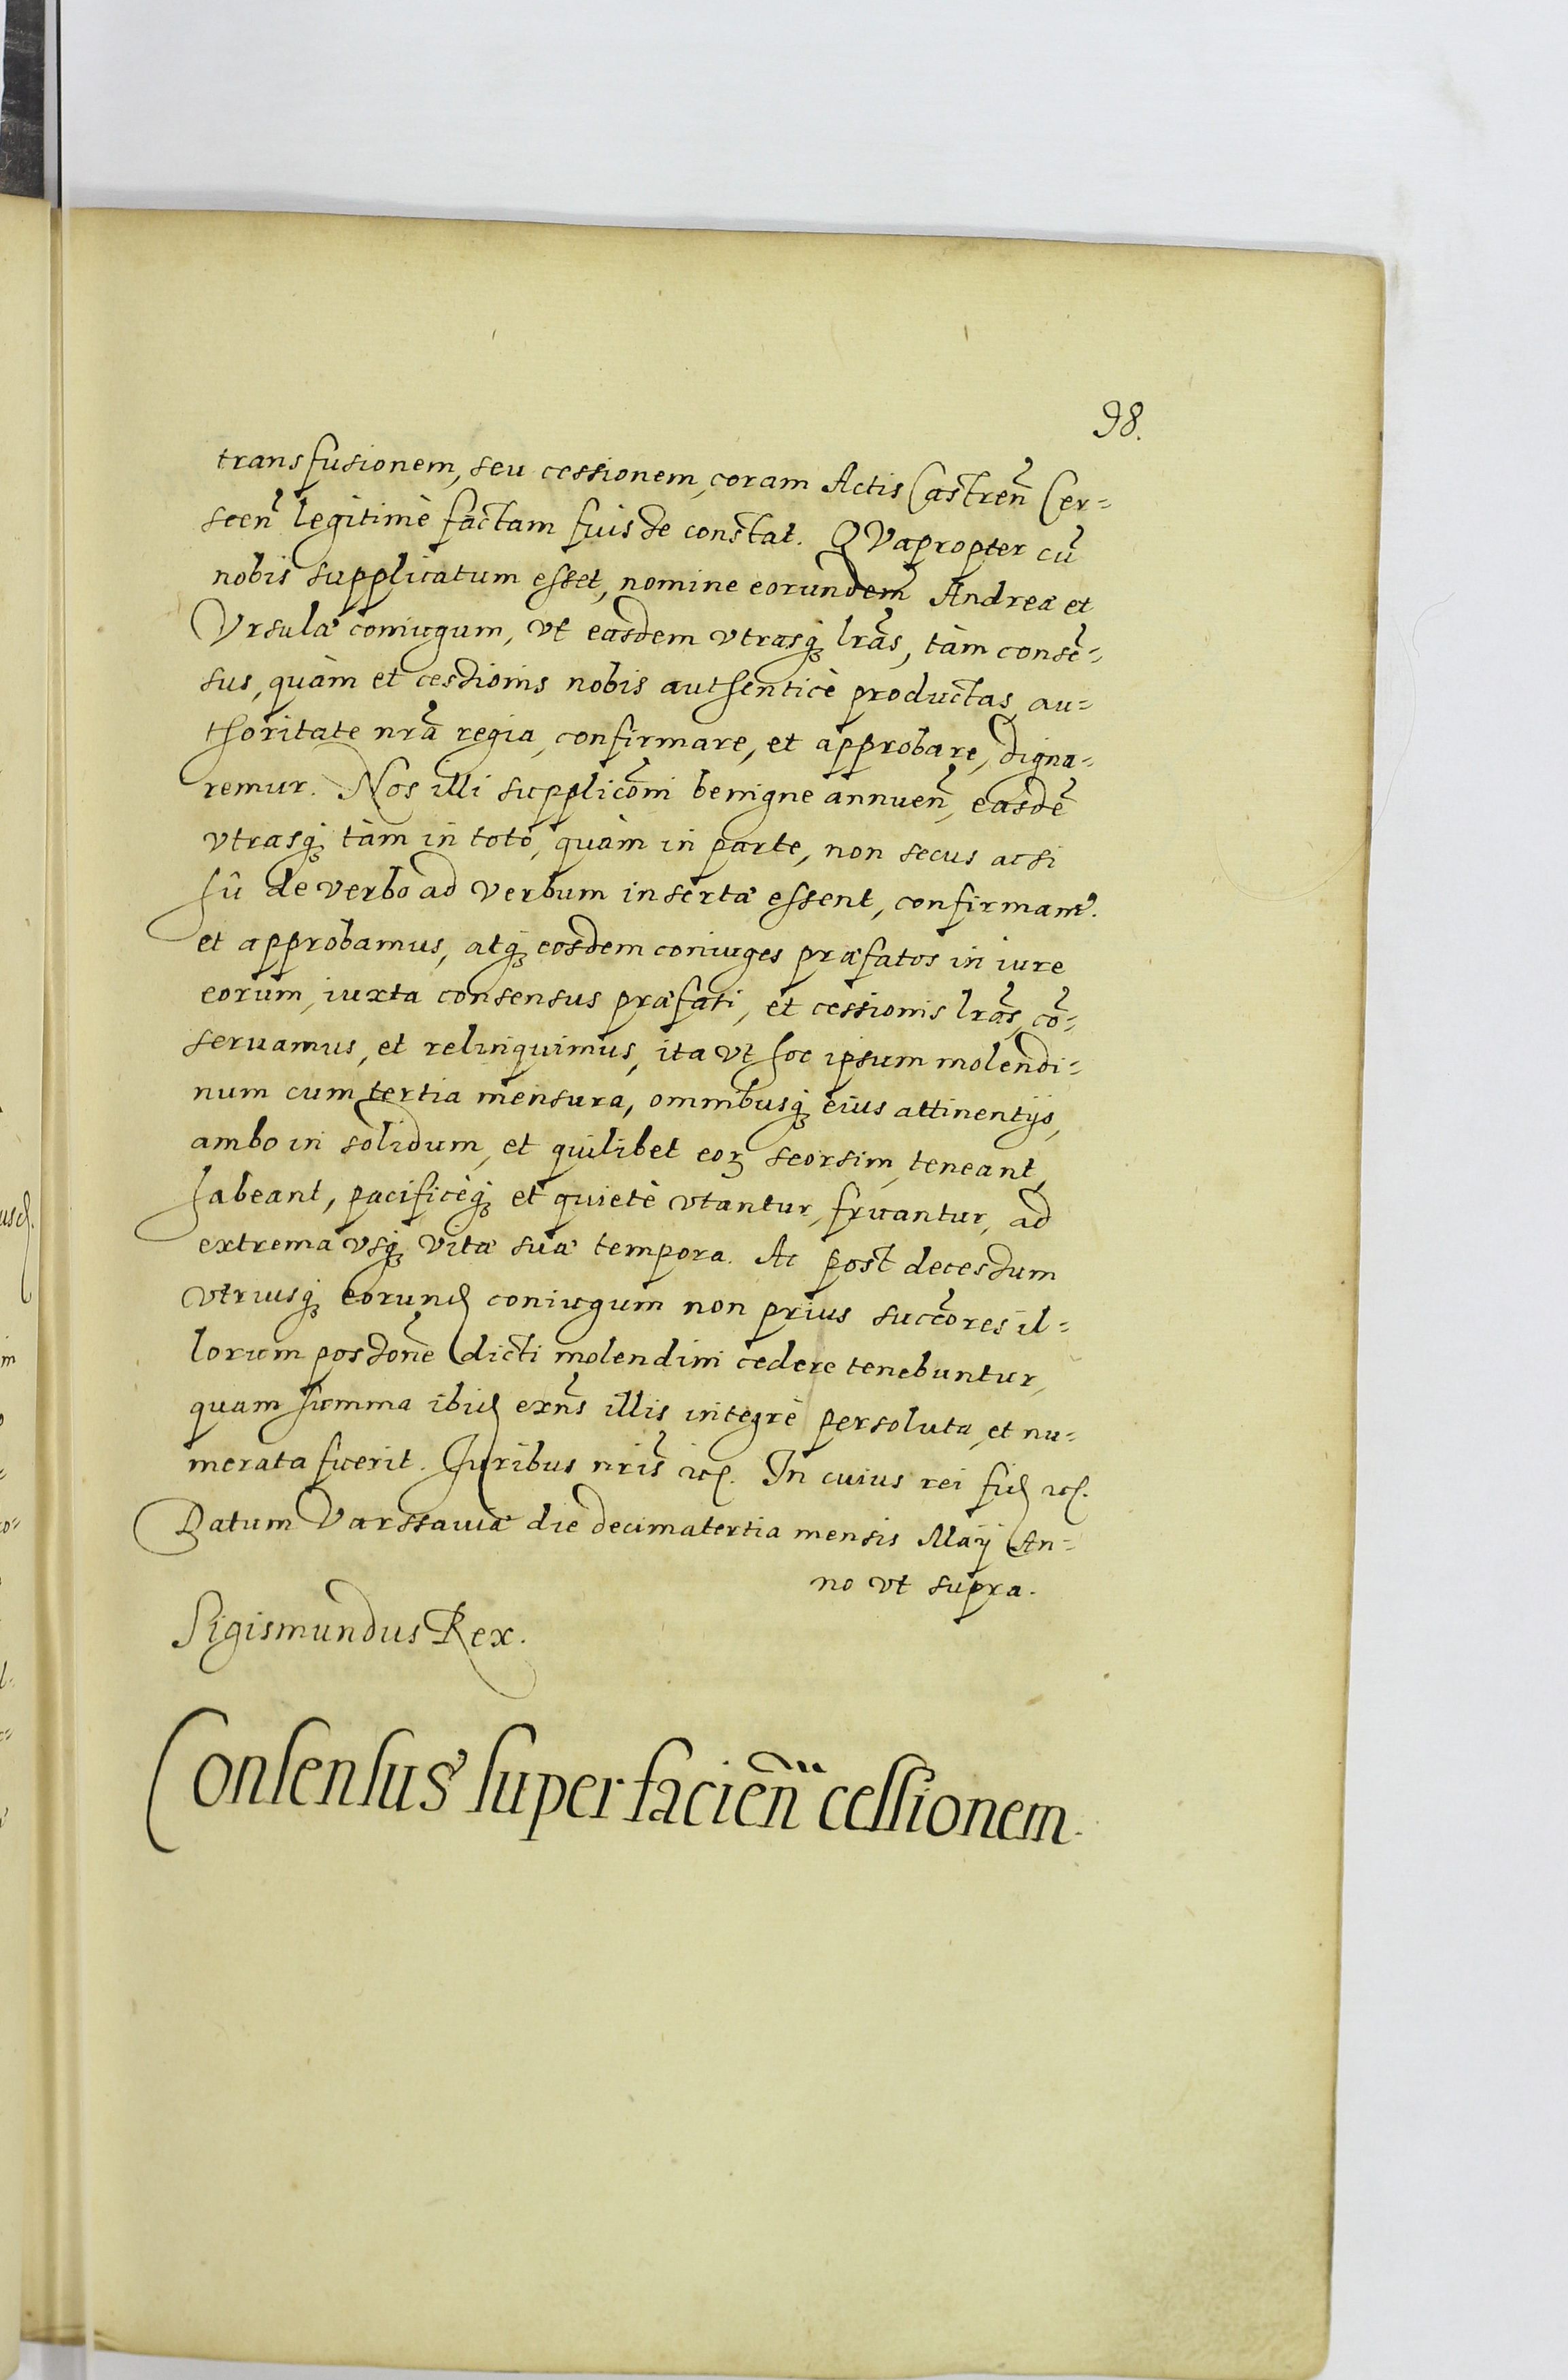 98.
transfusionem, seu cessionem, coram Actis Castren̄ Cer=
scen̄ legitimè factam fuisse constat. QVapropter cū
nobis supplicatum esset, nomine eorundem Andreæ et
Vrsulæ coniugum, vt easdem vtrasq́ꝫ lrās, tàm consē=
sus, quàm et cessionis nobis authenticè productas, au=
thoritate nrā regia, confirmare, et approbare, digna=
remur. Nos illi supplicōni benigne annuen̄, easdē
vtrasq́ꝫ tàm in toto, quàm in parte, non secus ac si
hû de verbo ad verbum insertæ essent, confirmamꝰ.
et approbamus, atq́ꝫ eosdem coniuges præfatos in iure
eorum, iuxta consensus præfati, et cessionis lrās, cō=
seruamus, et relinquimus, ita vt hoc ipsum molendi=
num cum tertia mensura, omnibusq́ꝫ eius attinentijs,
ambo in solidum, et quilibet eoꝝ seorsim, teneant,
habeant, pacificèq́ꝫ et quietè vtantur, fruantur, ad
extrema vsq́ꝫ vitæ suæ tempora. Ac post decessum
vtriusq́ꝫ eorund̨ coniugum non prius succōres il=
lorum possionē dicti molendini cedere tenebuntur,
quam summa ibid̨ exn̄s illis integrè persoluta, et nu=
merata fuerit. Juribus nrīs ꝛc. In cuius rei fid̨ ꝛc.
Datum Varssauiæ die decimatertia mensis Maij An=
no vt supra.
Sigismundus Rex.
Consensus super facien̄ cessionem.